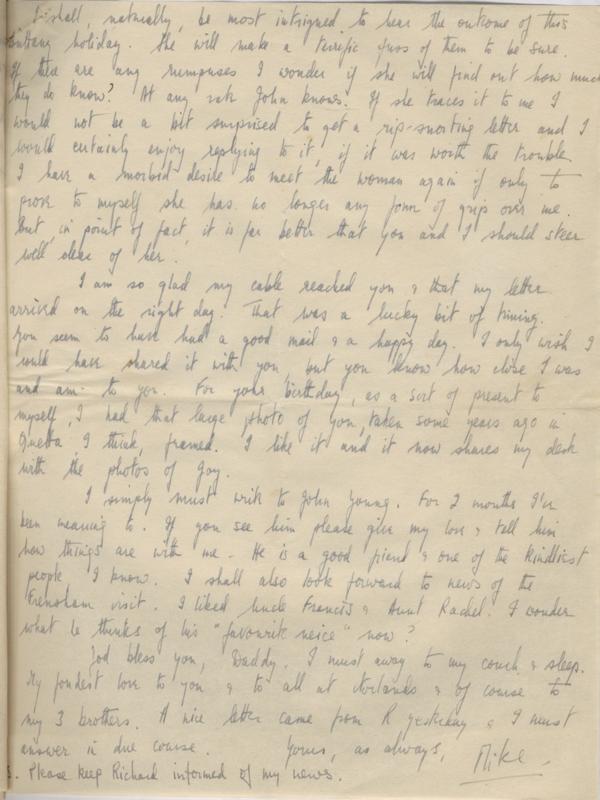 I shall, naturally, be most intrigued to hear the outcome of this
holiday. She will make a terrific fuss of them to be sure.
If there are any rumpuses I wonder if she will find out how much
they do know? At any rate John knows. If she traces it to me I
would not be a bit surprised to get a rip-snorting letter and I
would certainly enjoy replying to it, if it was worth the trouble.
I have a morbid desire to meet the woman again if only to
prove to myself she has no longer any form of grip over me.
But, in point of fact, it is far better that you and I should steer
well clear of her.
I am so glad my cable reached you & that my letter
arrived on the right day. That was a lucky bit of timing.
You seem to have had a good mail & a happy day. I only wish I
could have shared it with you but you know how close I was
and am to you. For your birthday, as a sort of present to
myself, I had that large photo of you, taken some years ago in
Quetta, I think, framed. I like it and it now shares my desk
with the photos of Gay.
I simply must write to John Young. For 2 months I've
been meaning to. If you see him please give my love & tell him
how things are with me - He is a good friend & one of the kindliest
people I know. I shall also look forward to news of the
Frensham visit. I liked Uncle Francis & Aunt Rachel. I wonder
what he thinks of his "favourite neice" now?
God bless you, Daddy. I must away to my couch & sleep.
My fondest love to you & to all at & of course to
my 3 brothers. A nice letter came from R yesterday & I must
answer in due course. Yours, as always, Mike.
S. Please keep Richard informed of my news.